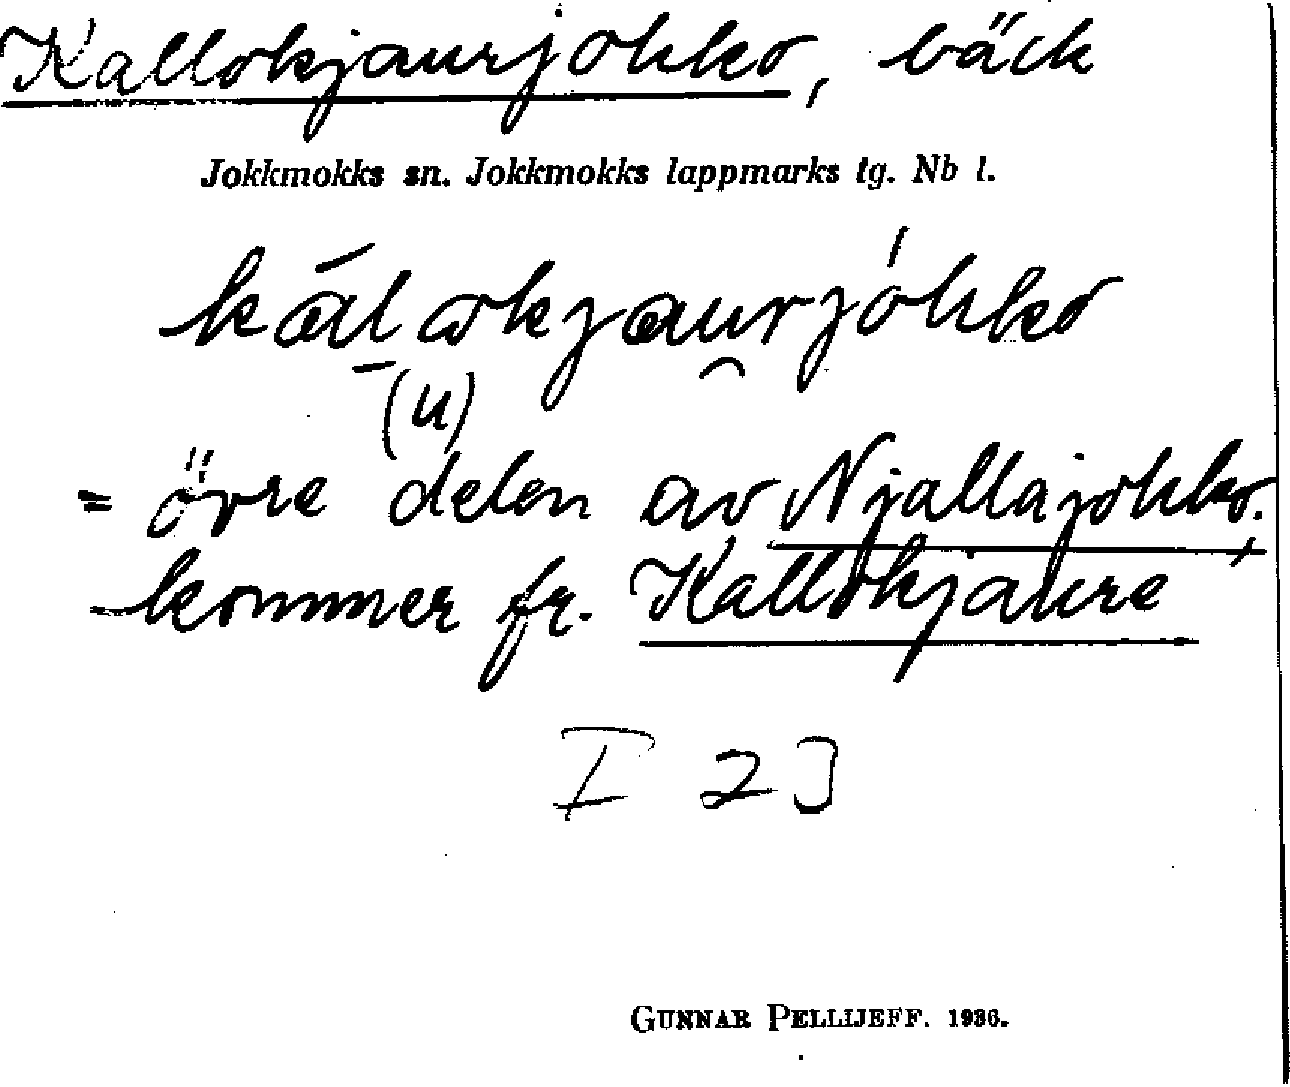 Kallokjaurjåkkå, bäck
Jokkmokks sn. Jokkmokks lappmarks tg. Nb l.
(u)
= övre delen av Njallajåkkå.
kommer fr. Kallokjaure
I 2 J
GUNNAR PELLIJEFF. 1936.